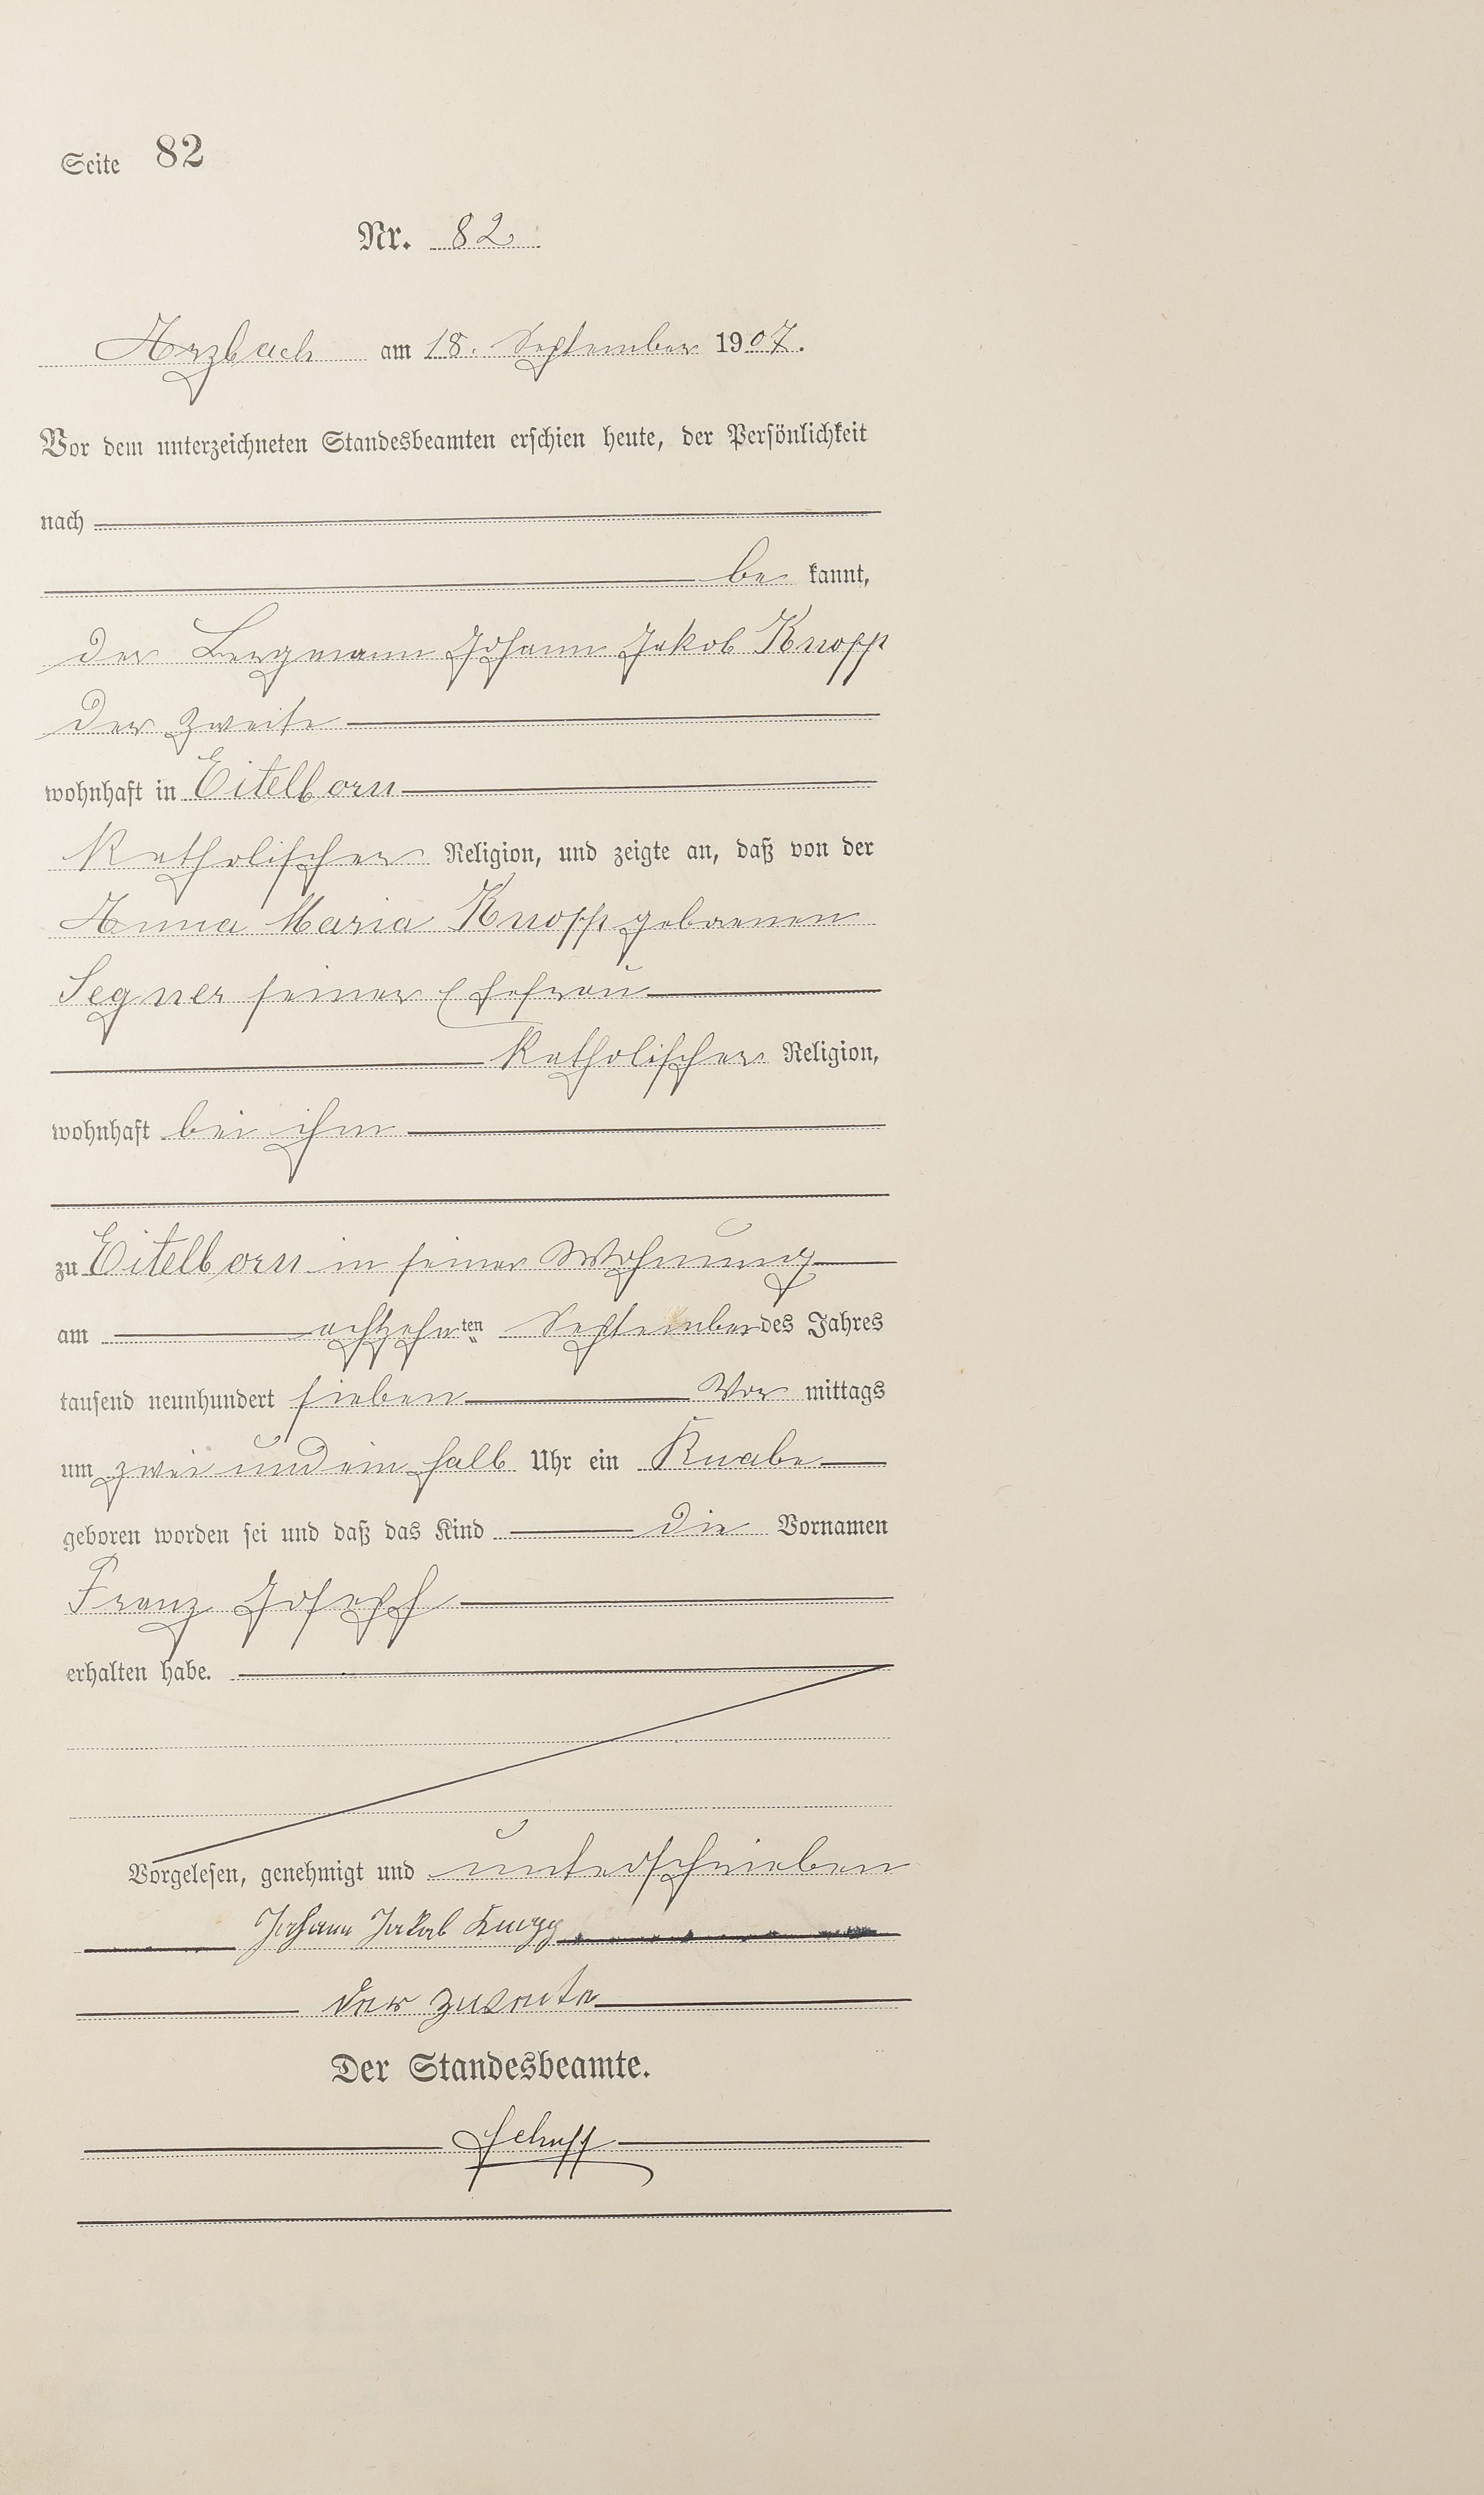 Seite 82
Nr. 82
Arzbach am 18. September 1907.
Vor dem unterzeichneten Standesbeamten erschien heute, der Persönlichkeit
nach
be kannt,
der Bergmann Johann Jakob Knopp
der Zweite
wohnhaft in Eitelborn
katholischer Religion, und zeigte an, daß von der
Anna Maria Knopp geborenen
Segner seiner Ehefrau
katholischer Religion,
wohnhaft bei ihm
zu Eitelborn in seiner Wohnung
am achtzehnten September des Jahres
tausend neunhundert sieben Vor mittags
um zwei und ein halb Uhr ein Knabe
geboren worden sei und daß das Kind die Vornamen
Franz Joseph
erhalten habe.
Vorgelesen, genehmigt und unterschrieben
Johann Jakob Knopp
der zweite
Der Standesbeamte.